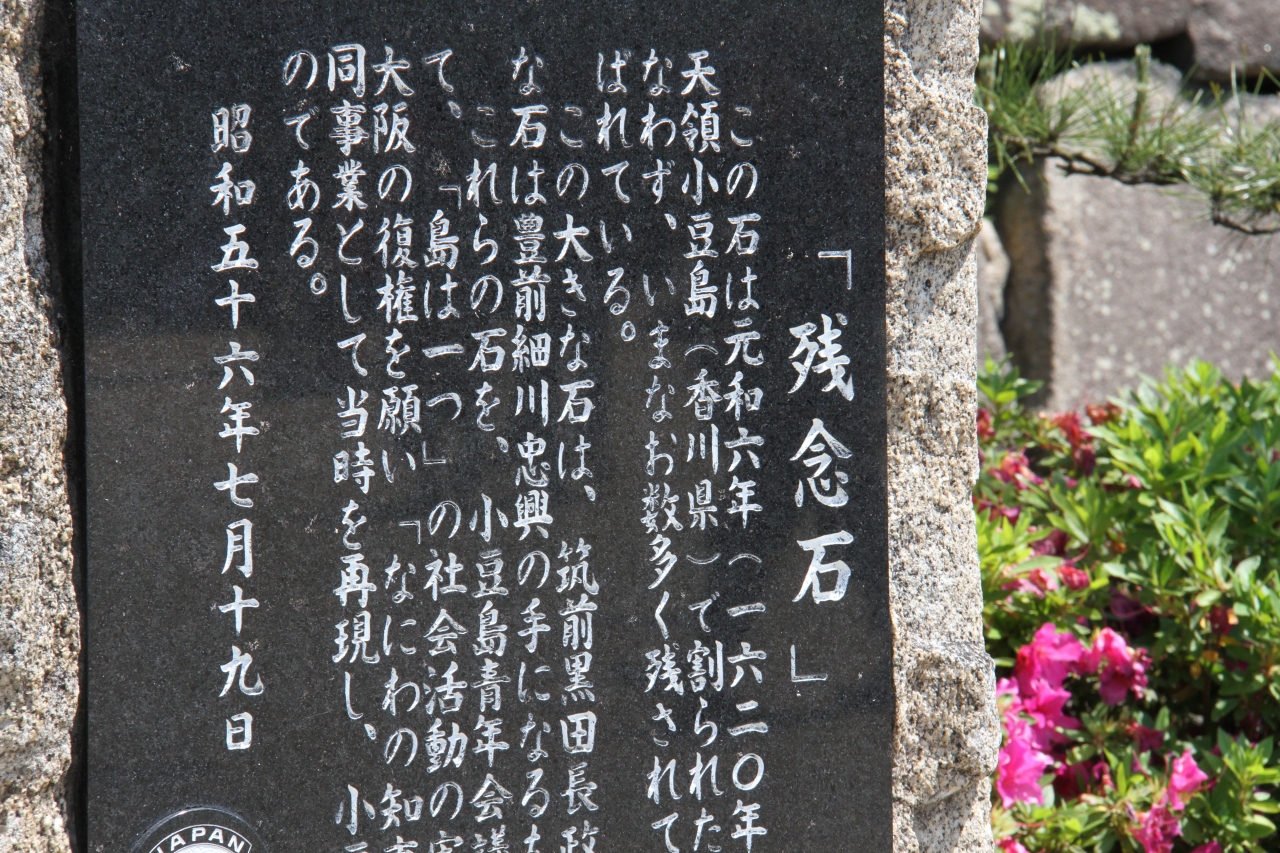 「残念石」
この石は元和六年（一六二〇年
天領小豆島（香川県）で割られた
なわず、いまなお数多く残されて
ばれている。
この大きな石は、筑前黒田長政
な石は豊前細川忠興の手になる
これらの石を、小豆島青年会議
て、「島は一つ」の社会活動の
大阪の復権を願い「なにわの知
同事業として当時を再現し、小
のである。
昭和五十六年七月十九日
JAPAN